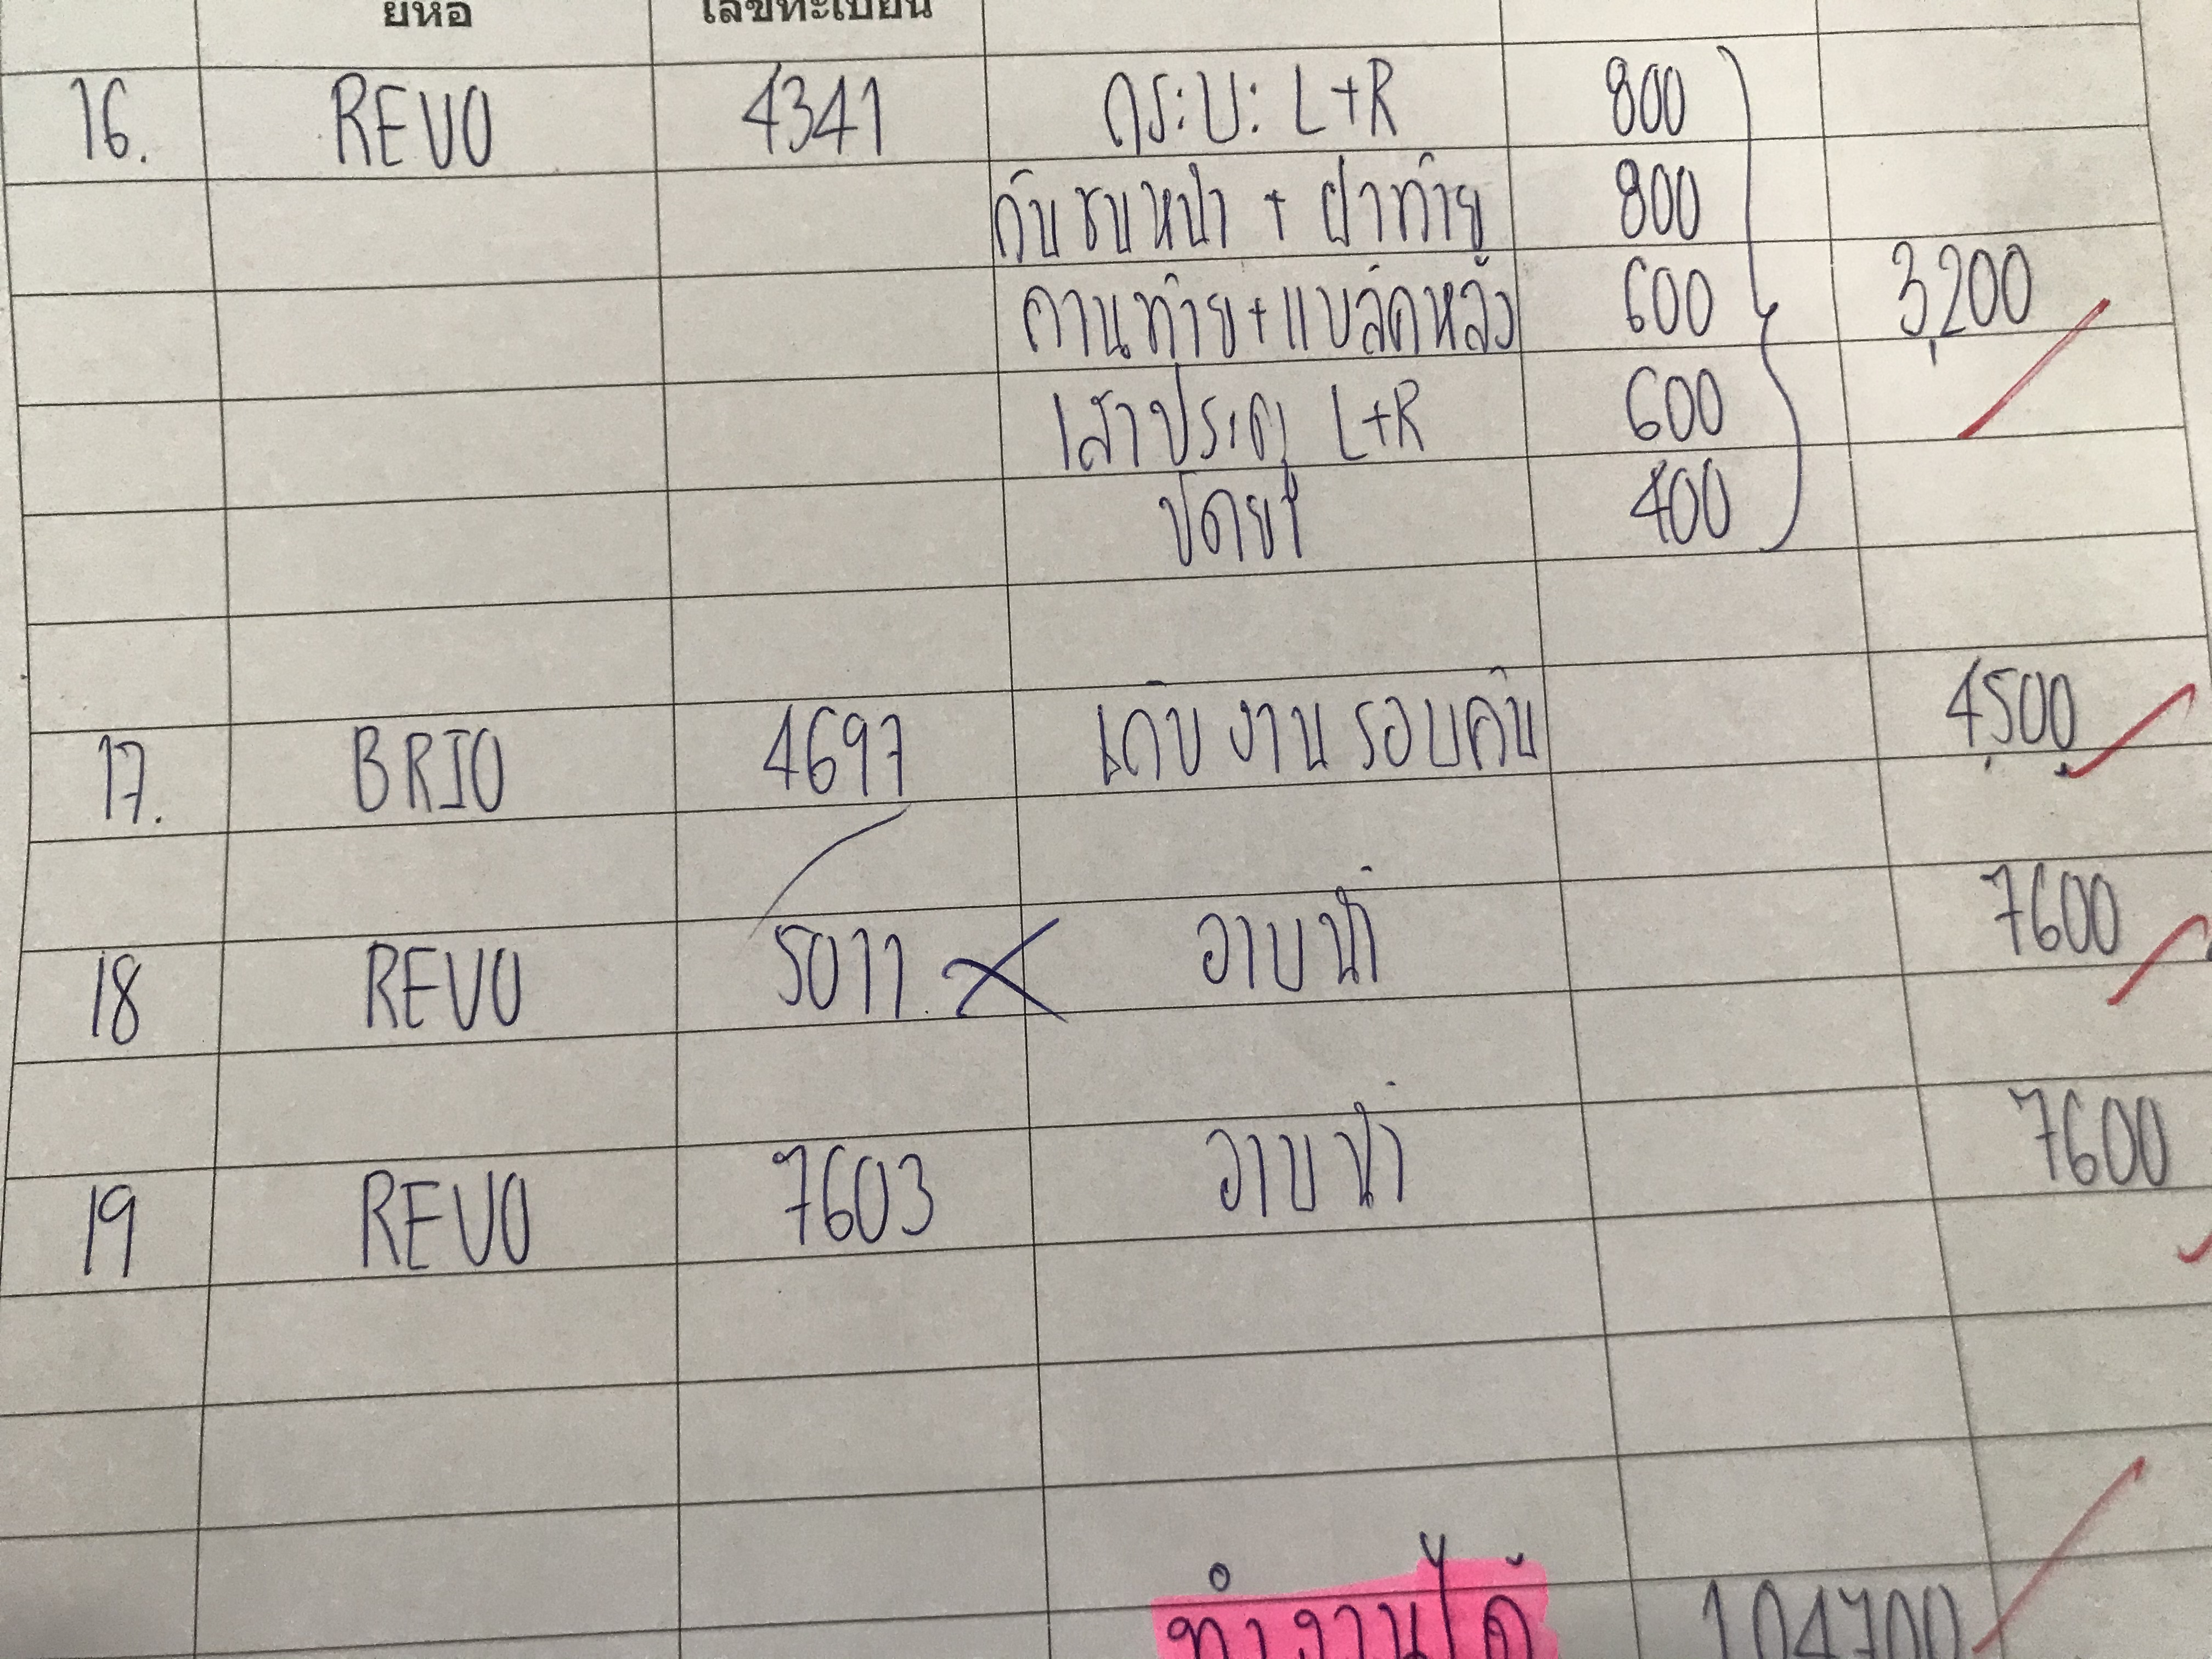 ยี่ห้อ เลขทะเบียน
16. REVO 4341 กระบะ L+R 800
กันชนหน้า + ฝาท้าย 800
คานท้าย+แบล็คหลัง 600 3,200
เสาประตู L+R 600
ปัดยา 400
17. BRIO 4697 เก็บงานรอบคัน 4,500
18 REVO 5011. อาบน้ำ 7600
19 REVO 7603 อาบน้ำ 7600
ทำงานได้ 104700